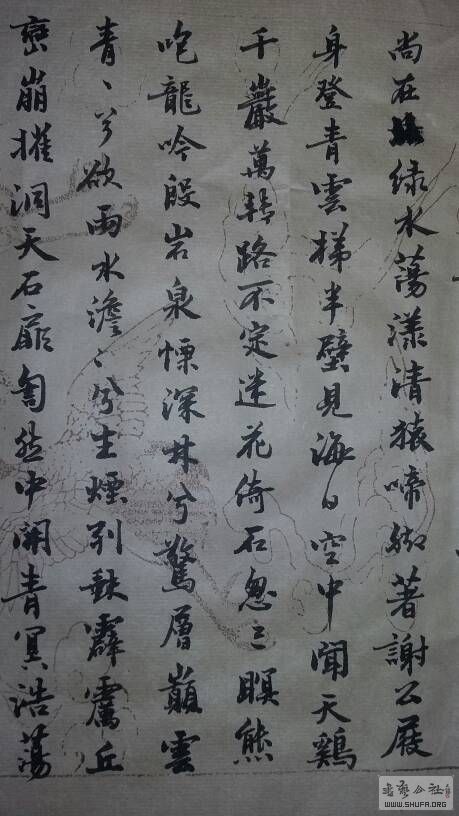 尚在绿水蕩漾清猿啼脚著謝公屐
身登青雲梯半壁見海日空中聞天鷄
千巖萬轉路不定迷花倚石忽已暝熊
咆龍吟殷岩泉慄深林兮驚層巔雲
青丶兮欲雨水澹丶兮生煙列缺霹靂丘
巒崩摧洞天石扉訇然中開青冥浩蕩
WWW.SHUFA.ORG